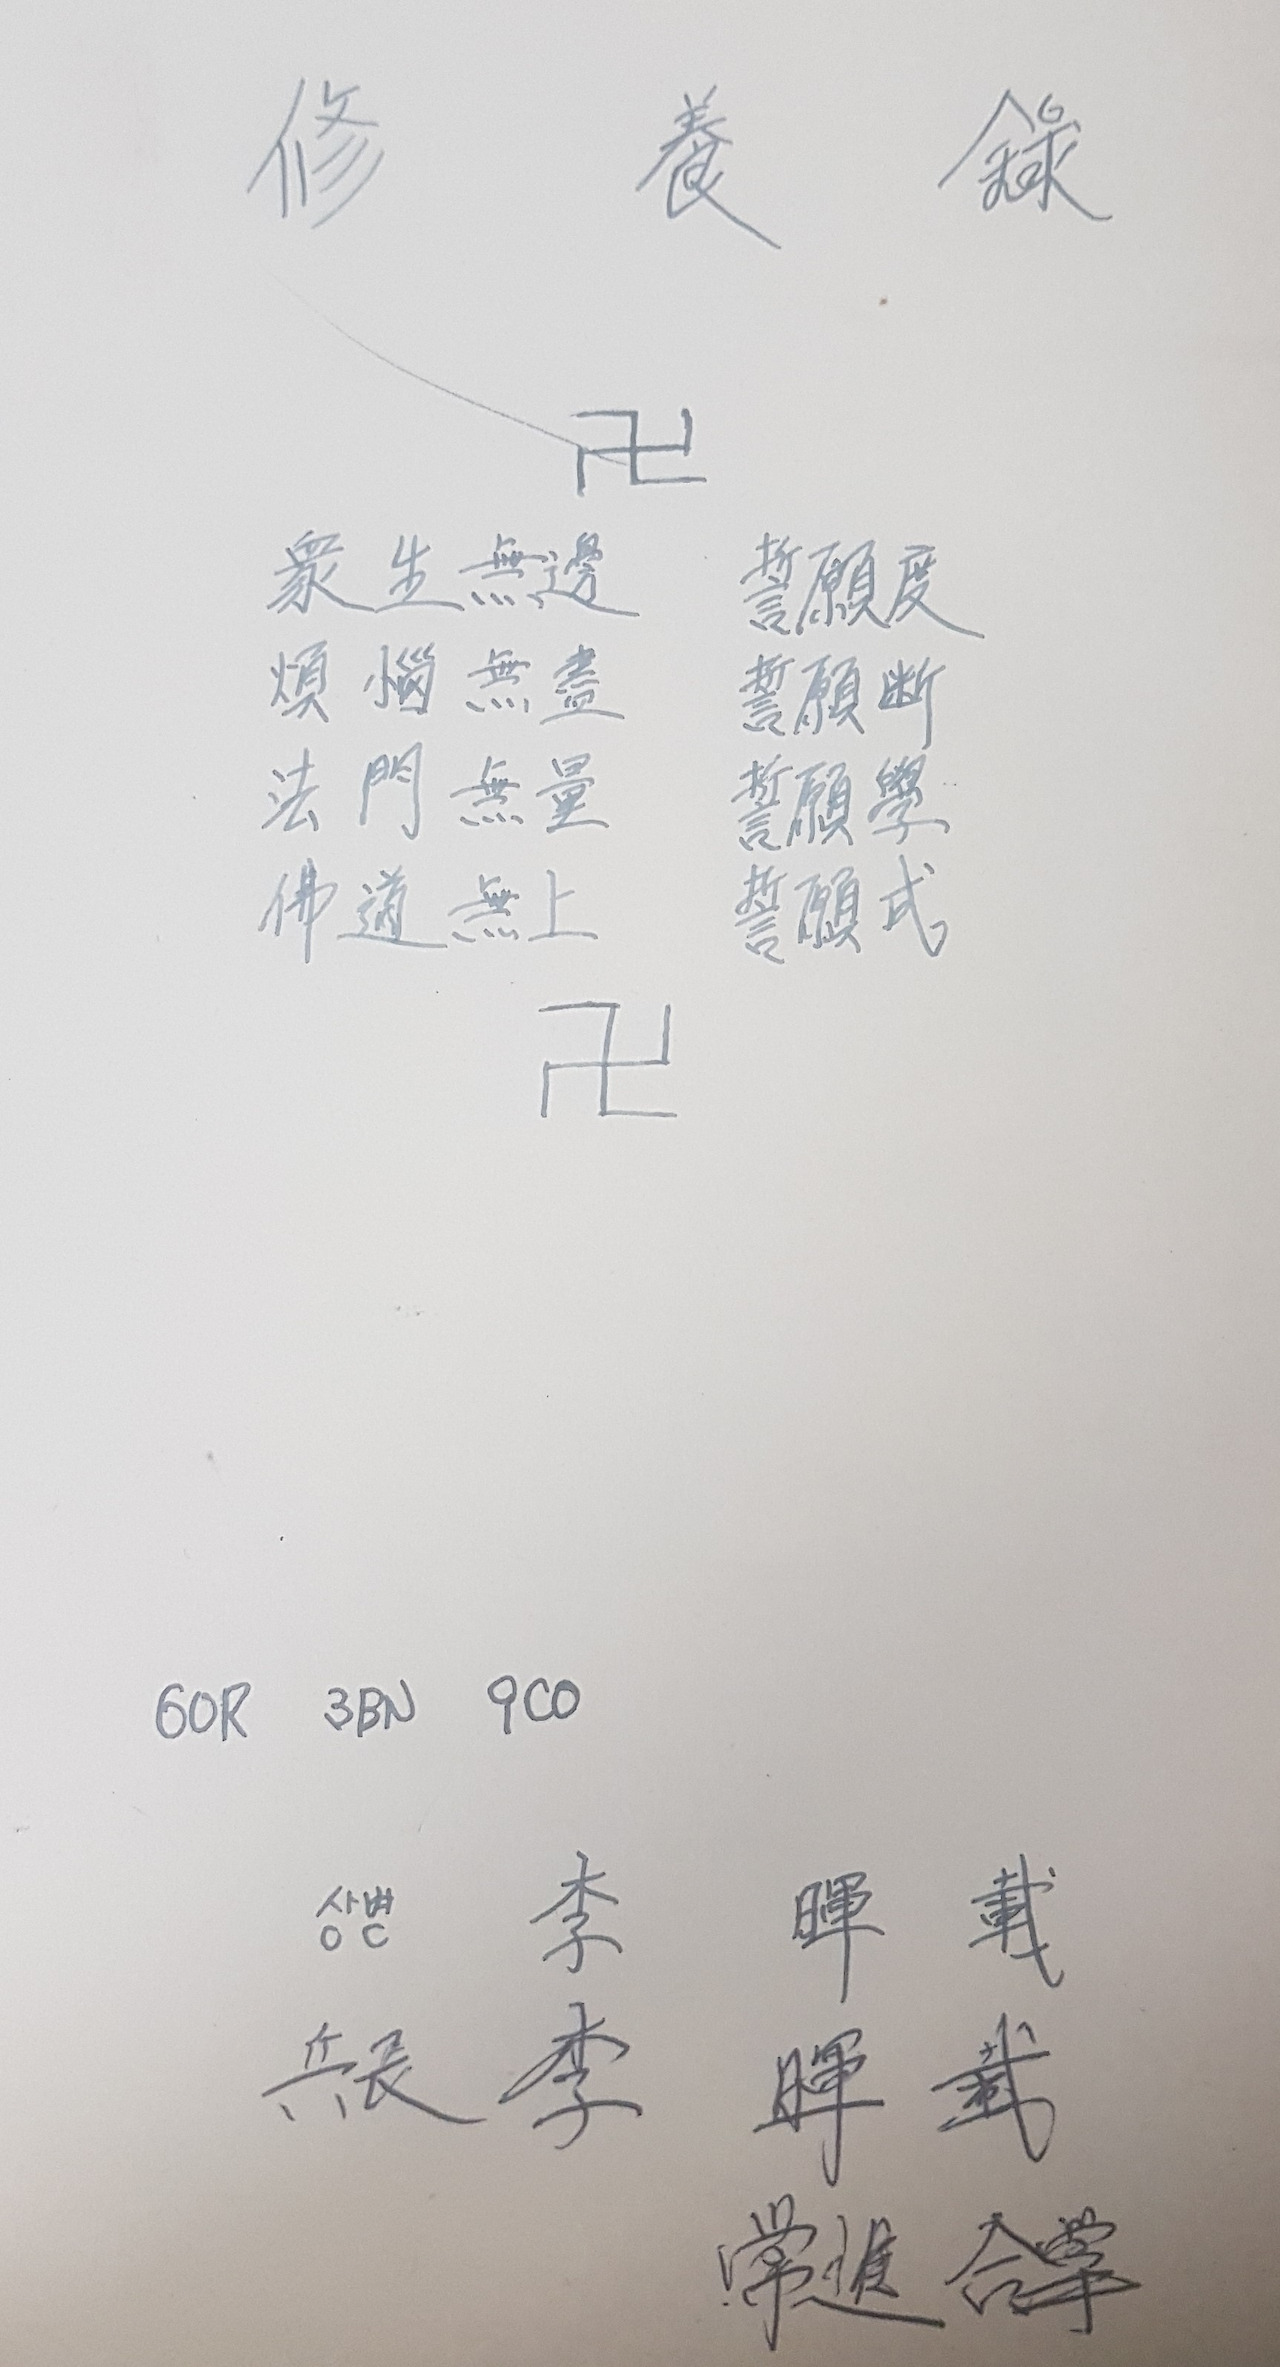 修 養 錄
卍
衆生無邊 誓願度
煩惱無盡 誓願断
法門無量 誓願學
佛道無上 誓願式
卍
60R 3BN 9CO
상병 李 暉 載
兵長 李 暉 載
常進 合掌